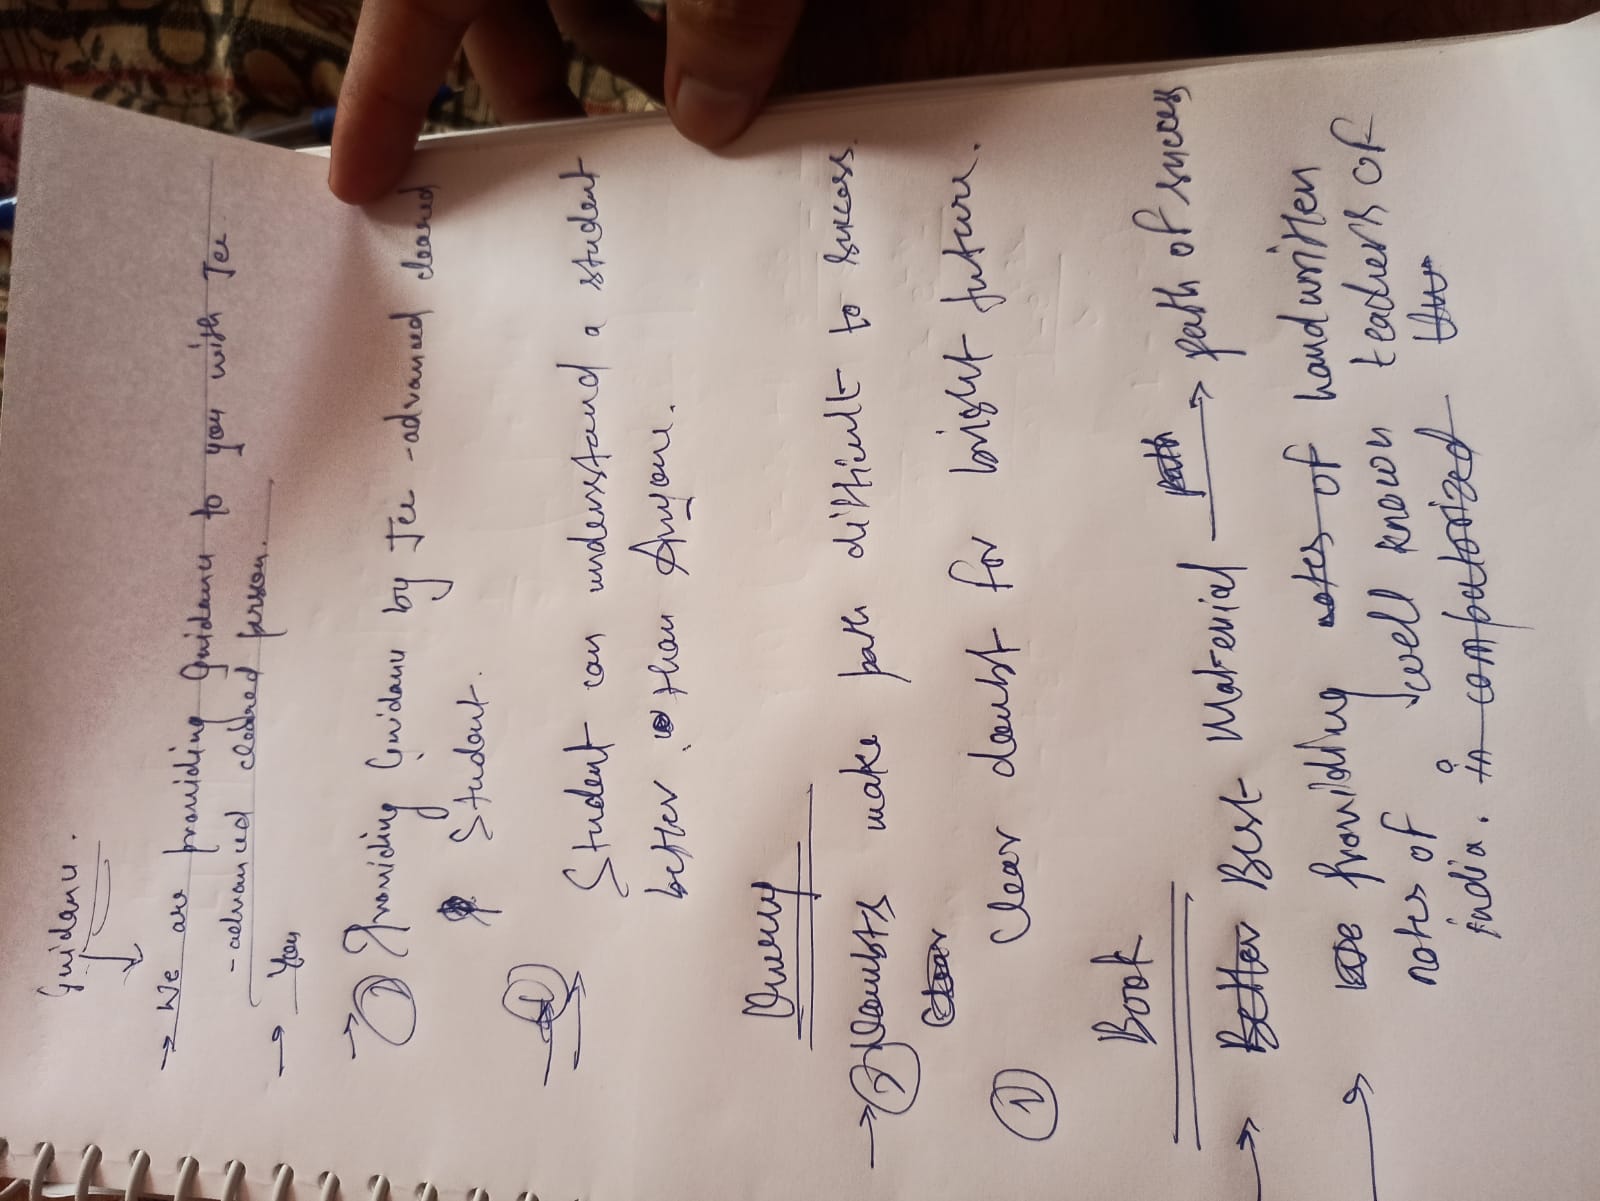 Guidanu.
→ We are providing Guidanu to you with Jee
- advanced cleared person.
→ You
→ ① Providing Guidanu by Jee-advanced cleared
Student.
Student can understand a student
better than Anyone.
Query
→ ② Doubts make path difficult to success.
Clear
① Clear doubt for bright future.
Book
→ Better Best Material path → path of success
→ providing notes of handwritten
notes of well known teachers of
india. in computorized